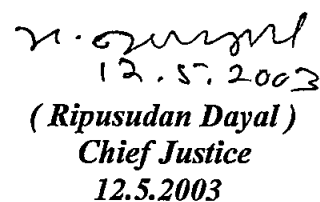 12.5.2003
( Ripusudan Dayal )
Chief Justice
12.5.2003